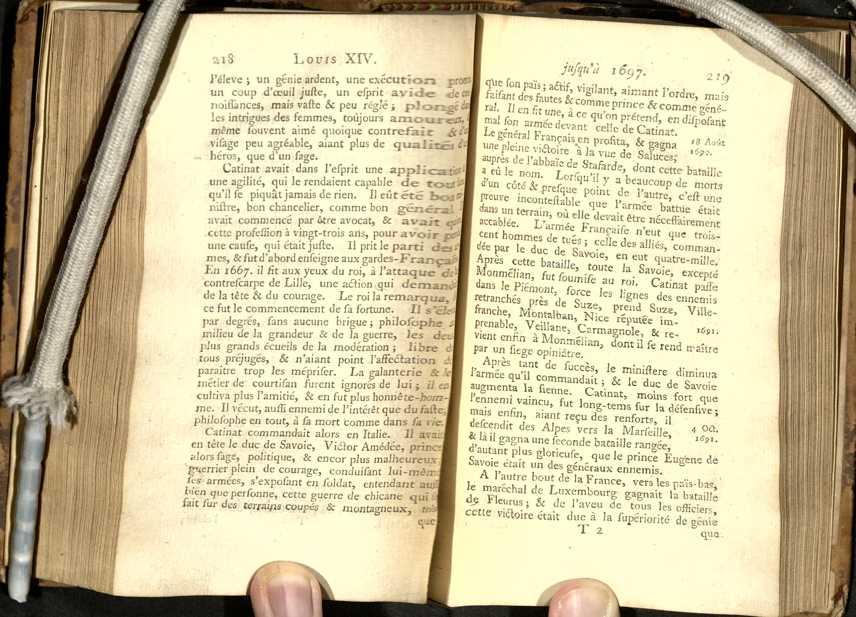 218 Louis XIV.
l'éleve ; un génie ardent, une exécution
un coup d'œuil juſte, un eſprit avide de
noiſſances, mais vaſte & peu réglé ; plongé
les intrigues des femmes, toûjours amoureux,
même ſouvent aimé quoique contrefait &
viſage peu agréable, aiant plus de qualités
héros, que d'un ſage.
Catinat avait dans l'eſprit une application
une agilité, qui le rendaient capable de tout
qu'il ſe piquât jamais de rien. Il eût été bon
niſtre, bon chancelier, comme bon général.
avait commencé par être avocat, & avait
cette profeſſion à vingt-trois ans, pour avoir
une cauſe, qui était juſte. Il prit le parti des
mes, & fut d'abord enſeigne aux gardes-Français
En 1667. il fit aux yeux du roi, à l'attaque de
contreſcarpe de Lille, une action qui
de la tête & du courage. Le roi la remarqua,
ce fut le commencement de ſa fortune. Il
par degrés, ſans aucune brigue ; philoſophe
milieu de la grandeur & de la guerre, les
plus grands écueils de la modération ; libre
tous préjugés, & n'aiant point l'affectation
paraître trop les mépriſer. La galanterie & le
métier de courtiſan furent ignorés de lui ; il
cultiva plus l'amitié, & en fut plus honnête-hom-
me. Il vécut, auſſi ennemi de l'intérêt que du faſte,
philoſophe en tout, à ſa mort comme dans ſa vie.
Catinat commandait alors en Italie. Il avait
en tête le duc de Savoie, Victor Amédée, prince
alors ſage, politique, & encor plus malheureux ;
guerrier plein de courage, conduiſant lui-même
ſes armées, s'expoſant en ſoldat, entendant auſſi
bien que perſonne, cette guerre de chicane qui
fait ſur des terrains coupés & montagneux,
que
juſqu'à 1697. 219
que ſon païs ; actif, vigilant, aimant l'ordre, mais
faiſant des fautes & comme prince & comme géné-
ral. Il en fit une, à ce qu'on prétend, en diſpoſant
mal ſon armée devant celle de Catinat.
Le général Français en profita, & gagna 18 Août
une pleine victoire à la vue de Saluces, 1690.
auprès de l'abbaïe de Stafarde, dont cette bataille
a eû le nom. Lorſqu'il y a beaucoup de morts
d'un côté & preſque point de l'autre, c'eſt une
preuve inconteſtable que l'armée battue était
dans un terrain, où elle devait être néceſſairement
accablée. L'armée Françaiſe n'eut que trois-
cent hommes de tués ; celle des alliés, comman-
dée par le duc de Savoie, en eut quatre-mille.
Après cette bataille, toute la Savoie, excepté
Monmélian, fut ſoumiſe au roi. Catinat paſſe
dans le Piémont, force les lignes des ennemis
retranchés près de Suze, prend Suze, Ville-
franche, Montalban, Nice réputée im-
prenable, Veillane, Carmagnole, & re- 1691.
vient enfin à Monmélian, dont il ſe rend maître
par un ſiege opiniâtre.
Après tant de ſuccès, le miniſtere diminua
l'armée qu'il commandait ; & le duc de Savoie
augmenta la ſienne. Catinat, moins fort que
l'ennemi vaincu, fut long-tems ſur la défenſive ;
mais enfin, aiant reçu des renforts, il
deſcendit des Alpes vers la Marſeille, 4 Oct.
& là il gagna une ſeconde bataille rangée, 1691.
d'autant plus glorieuſe, que le prince Eugene de
Savoie était un des généraux ennemis.
A l'autre bout de la France, vers les païs-bas,
le maréchal de Luxembourg gagnait la bataille
de Fleurus ; & de l'aveu de tous les officiers,
cette victoire était due à la ſupériorité de génie
T 2 que